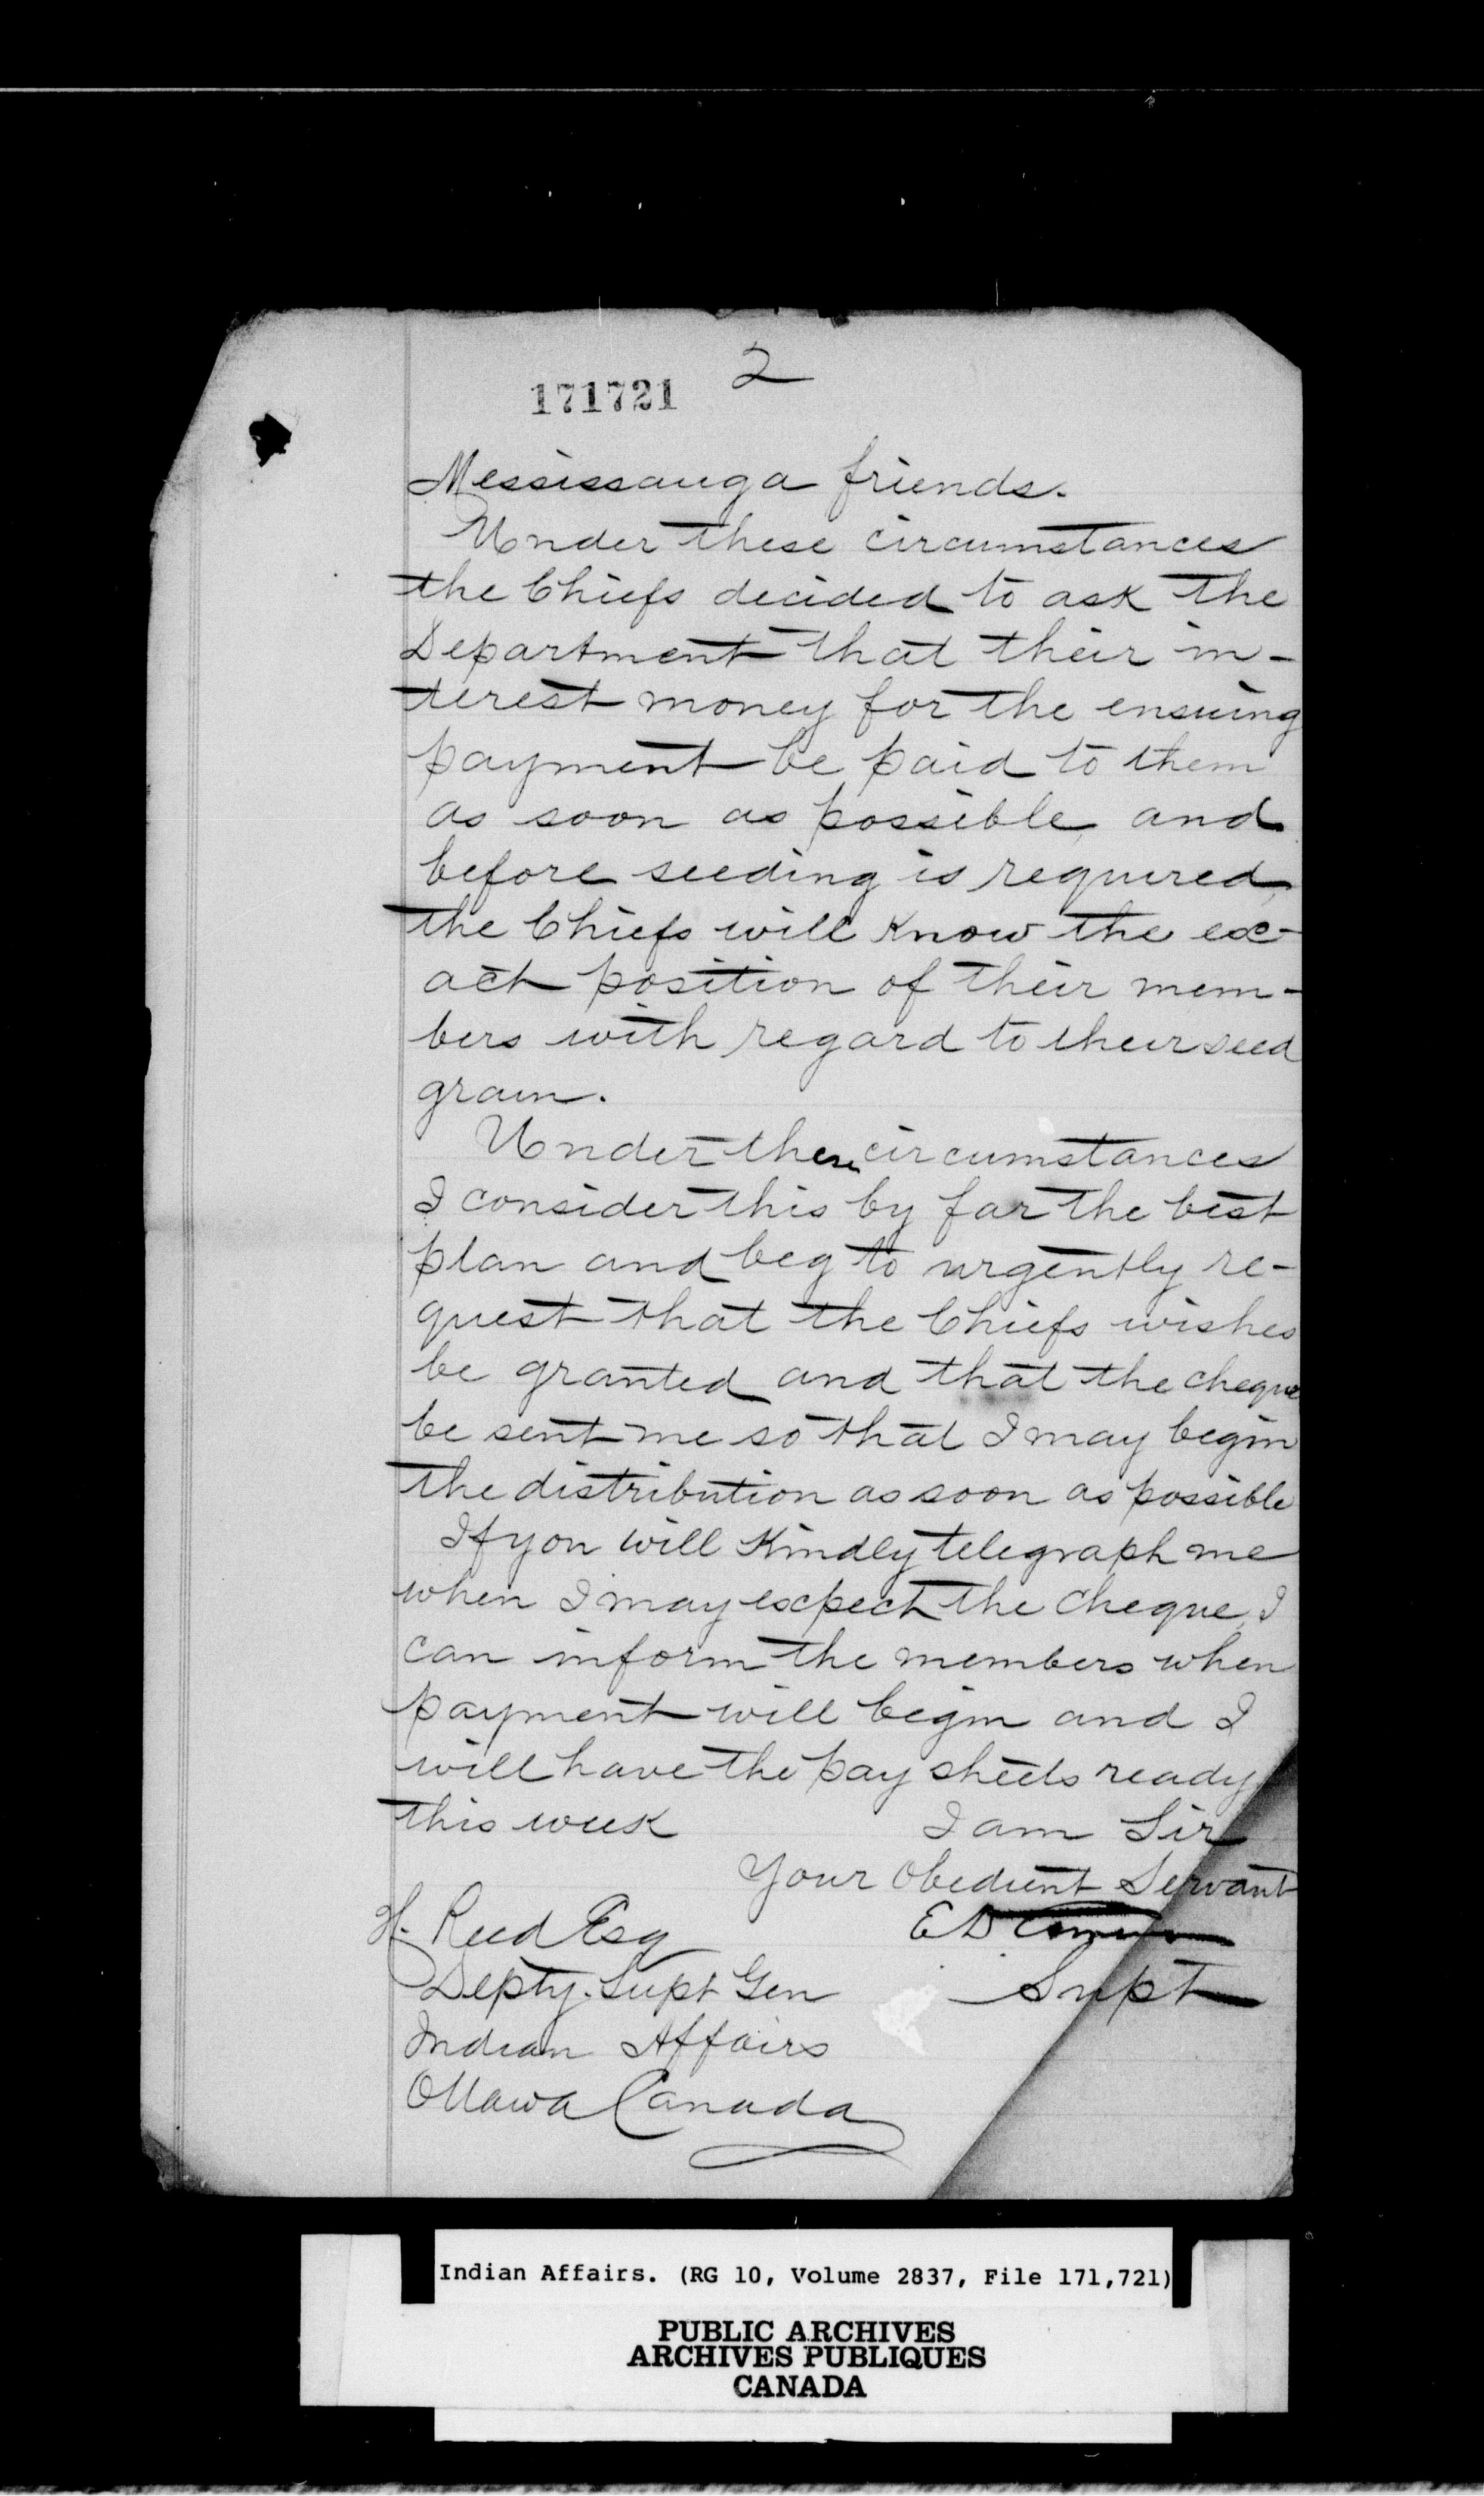 2
171721
Mississauga friends.
Under these circumstances
the Chiefs decided to ask the
Department that their in-
terest money for the ensuing
payment be paid to them
as soon as possible, and
before seeding is required,
the Chiefs will know the ex-
act position of their mem-
bers with regard to their seed
grain.
Under these circumstances
I consider this by far the best
plan and beg to urgently re-
quest that the Chiefs wishes
be granted and that the cheque
be sent me so that I may begin
the distribution as soon as possible
If you will Kindly telegraph me
when I may expect the cheque, I
can inform the members when
payment will begin and I
will have the pay sheets ready
this week
I am Sir
Your Obedient Servant
E D Cameron
Supt
H. Reed Esq
Depty. Supt Gen
Indian Affairs
Ottawa Canada
Indian Affairs. (RG 10, Volume 2837, File 171,721)
PUBLIC ARCHIVES
ARCHIVES PUBLIQUES
CANADA